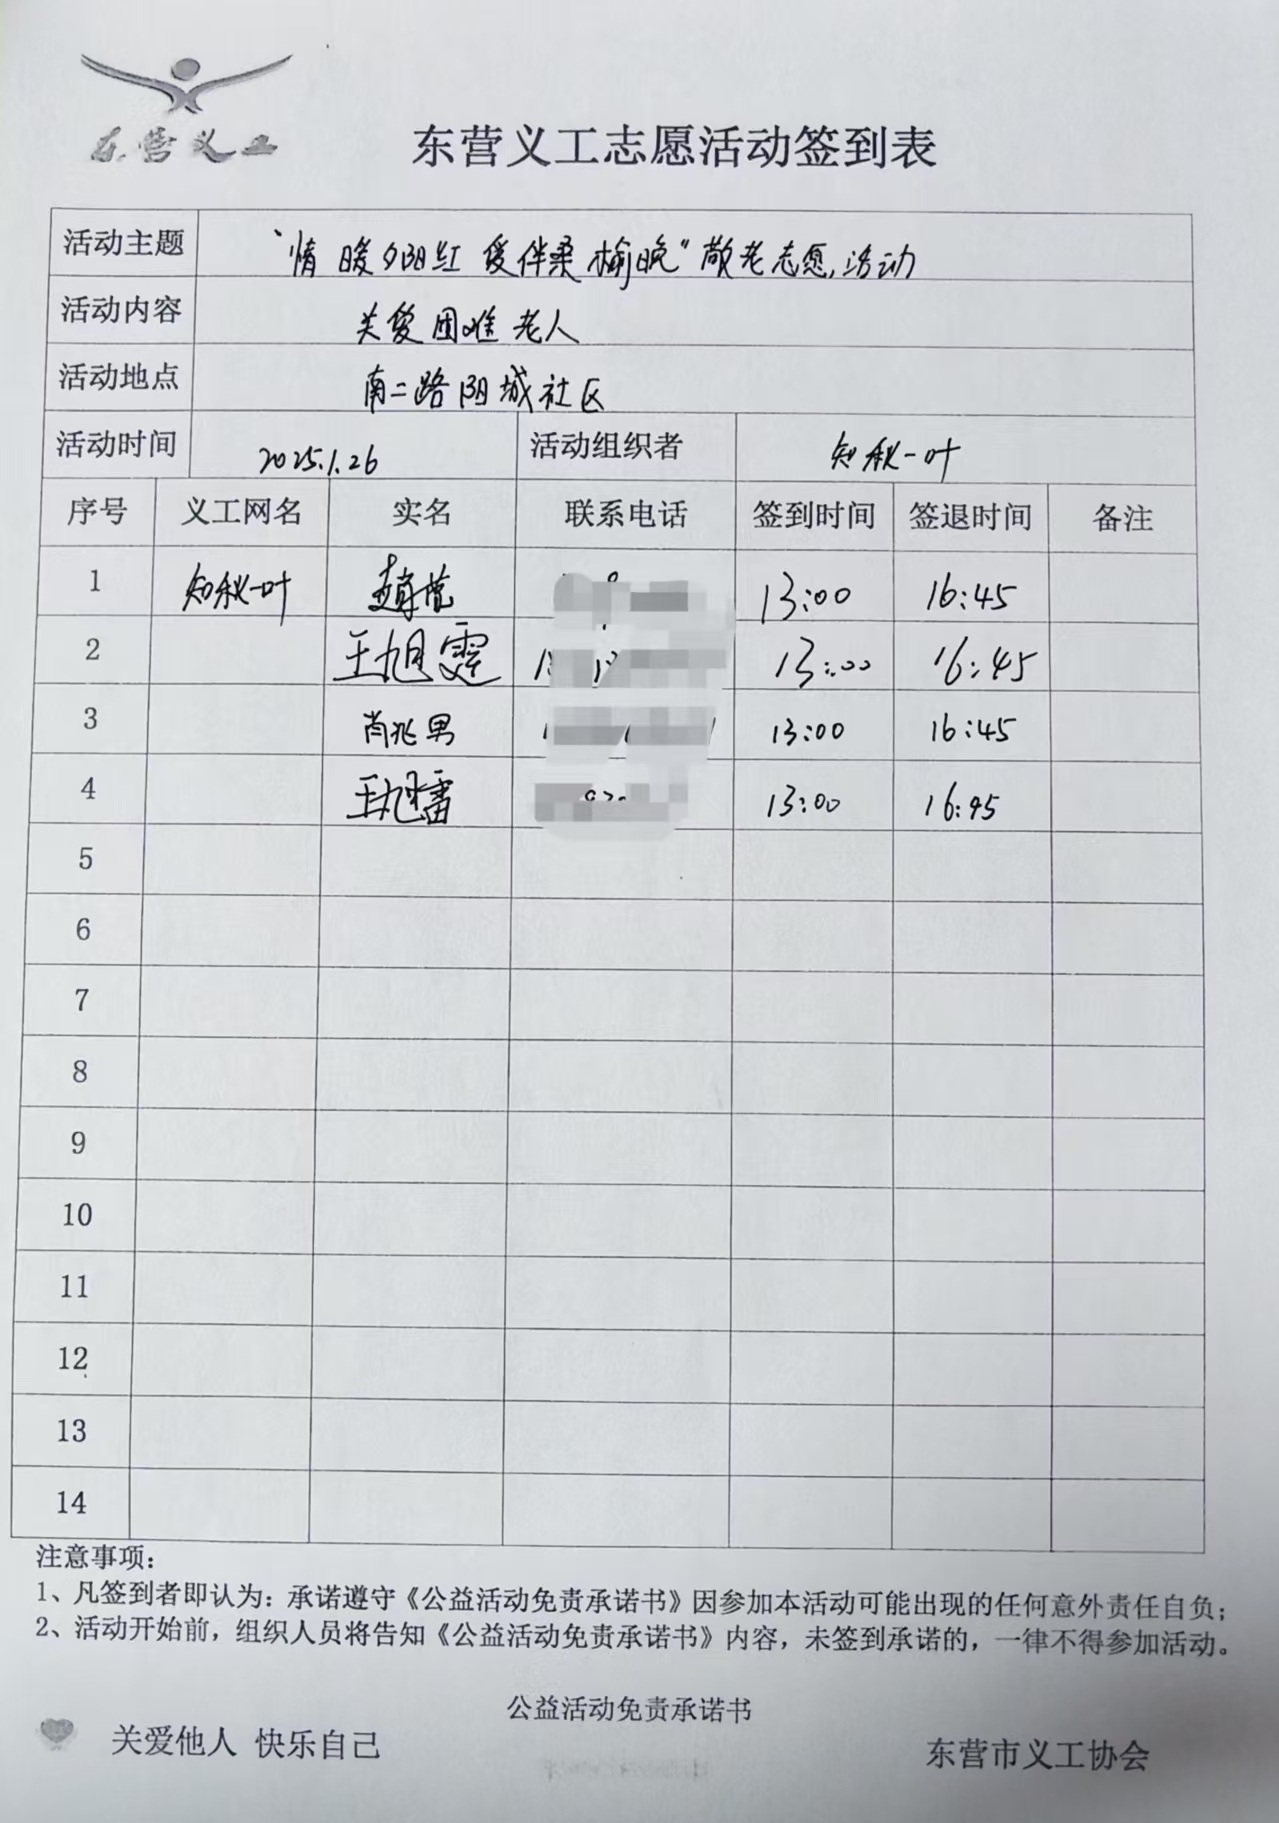 东营义工
东营义工志愿活动签到表
活动主题 “情暖夕阳红 爱伴桑榆晚”敬老志愿活动
活动内容 关爱困难老人
活动地点 南二路阳城社区
活动时间 2025.1.26 活动组织者 知秋一叶
序号 义工网名 实名 联系电话 签到时间 签退时间 备注
1 知秋一叶 13:00 16:45
2 王旭霆 13:00 16:45
3 肖兆男 13:00 16:45
4 王旭雷 13:00 16:45
5
6
7
8
9
10
11
12
13
14
注意事项：
1、凡签到者即认为：承诺遵守《公益活动免责承诺书》因参加本活动可能出现的任何意外责任自负；
2、活动开始前，组织人员将告知《公益活动免责承诺书》内容，未签到承诺的，一律不得参加活动。
公益活动免责承诺书
关爱他人 快乐自己
东营市义工协会